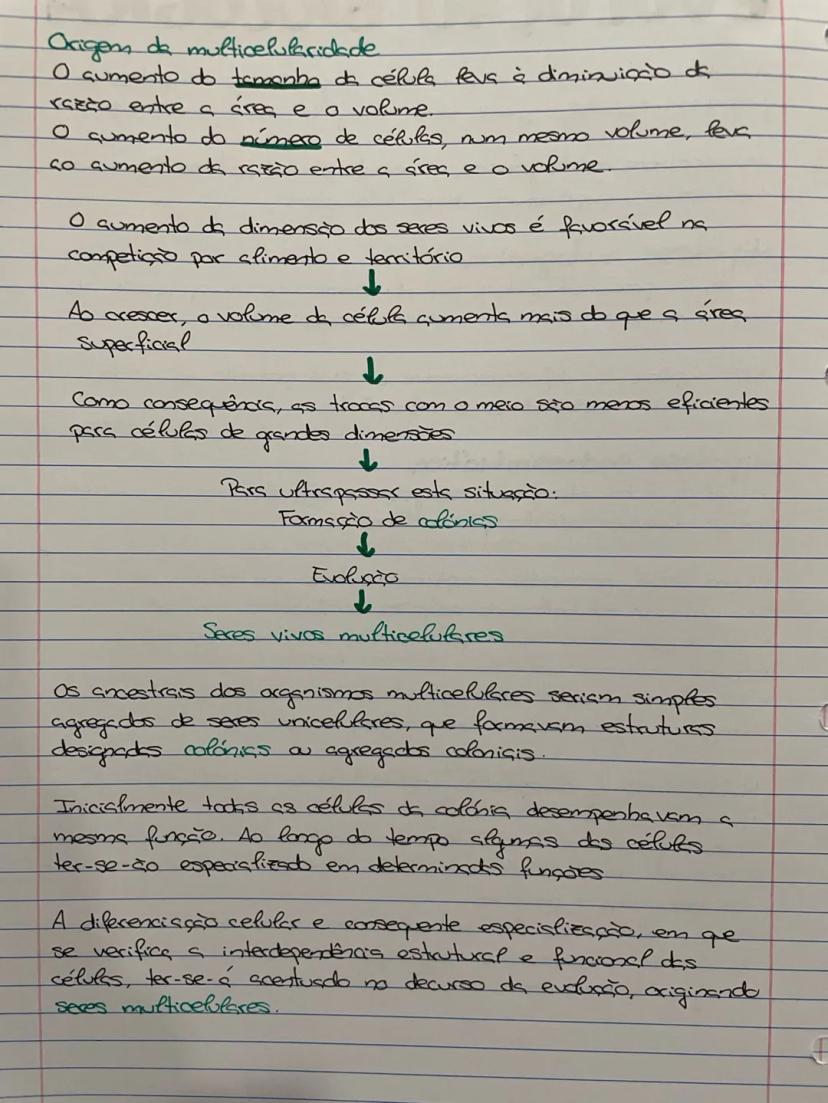 Origem da multicelularidade
O aumento do tamanho da célula leva à diminuição da
razão entre a área e o volume.
O aumento do número de células, num mesmo volume, leva
ao aumento da razão entre a área e o volume.
O aumento da dimensão dos seres vivos é favorável na
competição por alimento e território
↓
Ao crescer, o volume da célula aumenta mais do que a área
superficial
↓
Como consequência, as trocas com o meio são menos eficientes
para células de grandes dimensões
↓
Para ultrapassar esta situação:
Formação de colónias
↓
Evolução
↓
Seres vivos multicelulares
Os ancestrais dos organismos multicelulares seriam simples
agregados de seres unicelulares, que formavam estruturas
designadas colónias ou agregados coloniais.
Inicialmente todas as células da colónia desempenhavam a
mesma função. Ao longo do tempo algumas das células
ter-se-ão especializado em determinadas funções
A diferenciação celular e consequente especialização, em que
se verifica a interdependência estrutural e funcional das
células, ter-se-á acentuado no decurso da evolução, originando
seres multicelulares.